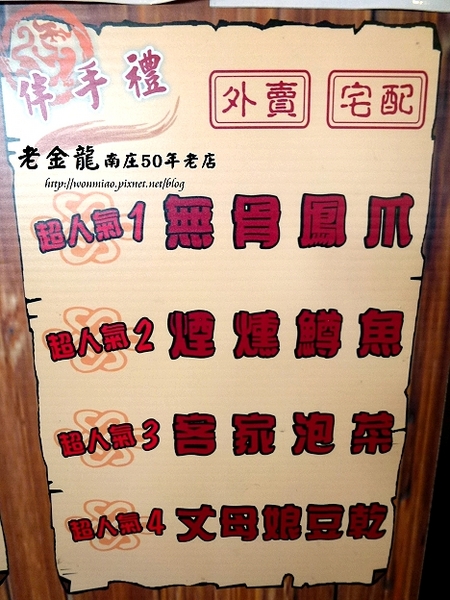 伴手禮
外賣 宅配
老金龍南庄50年老店
http://wonmiao.pixnet.net/blog
超人氣1 無骨鳳爪
超人氣2 煙燻鱒魚
超人氣3 客家泡菜
超人氣4 丈母娘豆乾